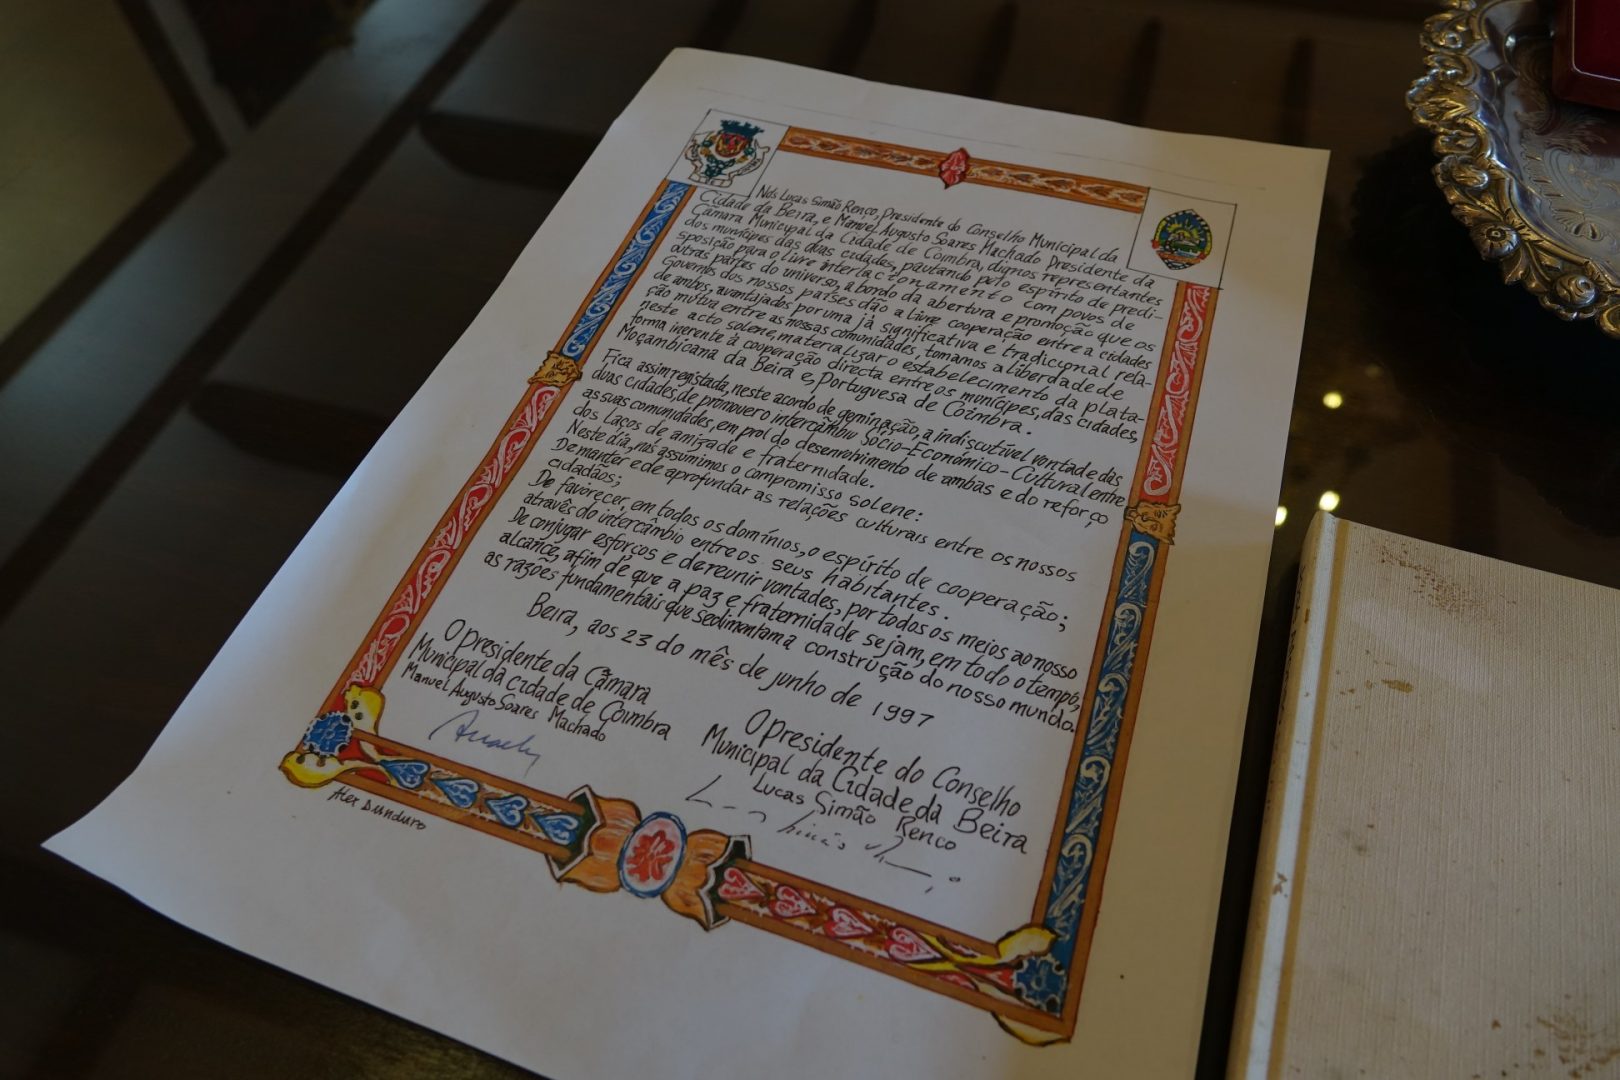 Nós Lucas Simão Renço, Presidente do Conselho Municipal da
Cidade da Beira, e Manuel Augusto Soares Machado Presidente da
Câmara Municipal da Cidade de Coimbra, dignos representantes
dos munícipes das duas cidades, pautando pelo espírito de predi-
sposição para o livre interlacionamento com povos de
outras partes do universo, a bordo da abertura e promoção que os
Governos dos nossos países dão a livre cooperação entre a cidades
de ambos, avantajados por uma já significativa e tradicional rela-
ção mutua entre as nossas comunidades, tomamos a liberdade de
neste acto solene, materializar o estabelecimento da plata-
forma inerente à cooperação directa entre os munícipes, das cidades,
Moçambicana da Beira e, Portuguesa de Coimbra.
Fica assim registada, neste acordo de geminação, a indiscutível vontade das
duas cidades, de promover o intercâmbio Sócio-Económico-Cultural entre
as suas comunidades, em prol do desenvolvimento de ambas e do reforço
dos Laços de amizade e fraternidade.
Neste dia, nós assumimos o compromisso solene:
De manter e de aprofundar as relações culturais entre os nossos
cidadãos;
De favorecer, em todos os domínios, o espírito de cooperação;
através do intercâmbio entre os seus habitantes.
De conjugar esforços e de reunir vontades, por todos os meios ao nosso
alcance, afim de que a paz e fraternidade sejam, em todo o tempo,
as razões fundamentais que sedimentam a construção do nosso mundo.
Beira, aos 23 do mês de junho de 1997
O presidente da Câmara
Municipal da cidade de Coimbra
Manuel Augusto Soares Machado
O presidente do Conselho
Municipal da Cidade da Beira
Lucas Simão Renço
Alex Dunduro